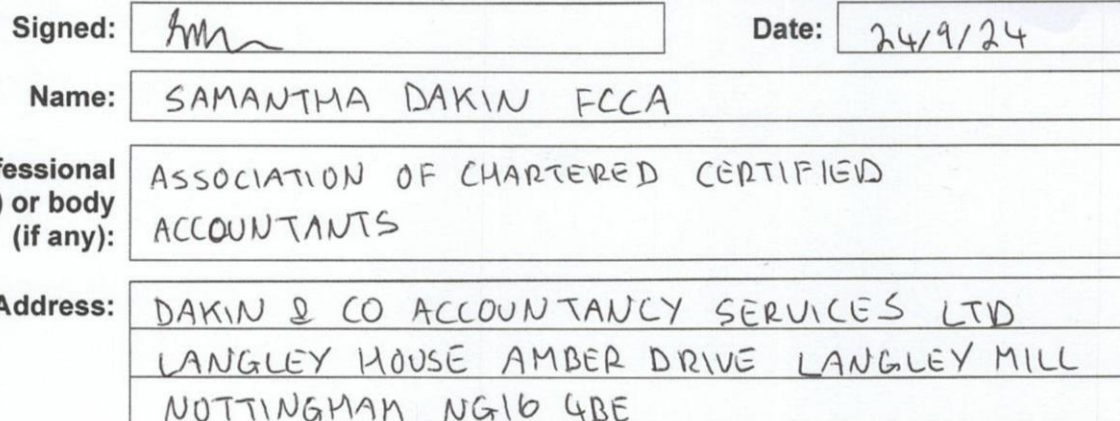 Signed: Date: 24/9/24
Name: SAMANTHA DAKIN FCCA
fessional ASSOCIATION OF CHARTERED CERTIFIED
) or body ACCOUNTANTS
(if any):
Address: DAKIN & CO ACCOUNTANCY SERVICES LTD
LANGLEY HOUSE AMBER DRIVE LANGLEY MILL
NOTTINGHAM NG16 4BE